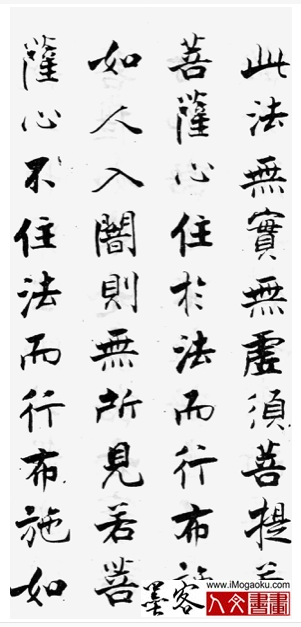 此法無實無虛須菩提
菩薩心住於法而行布
如人入闇則無所見若菩
薩心不住法而行布施如
墨客
www.iMogaoku.com
人文書畫